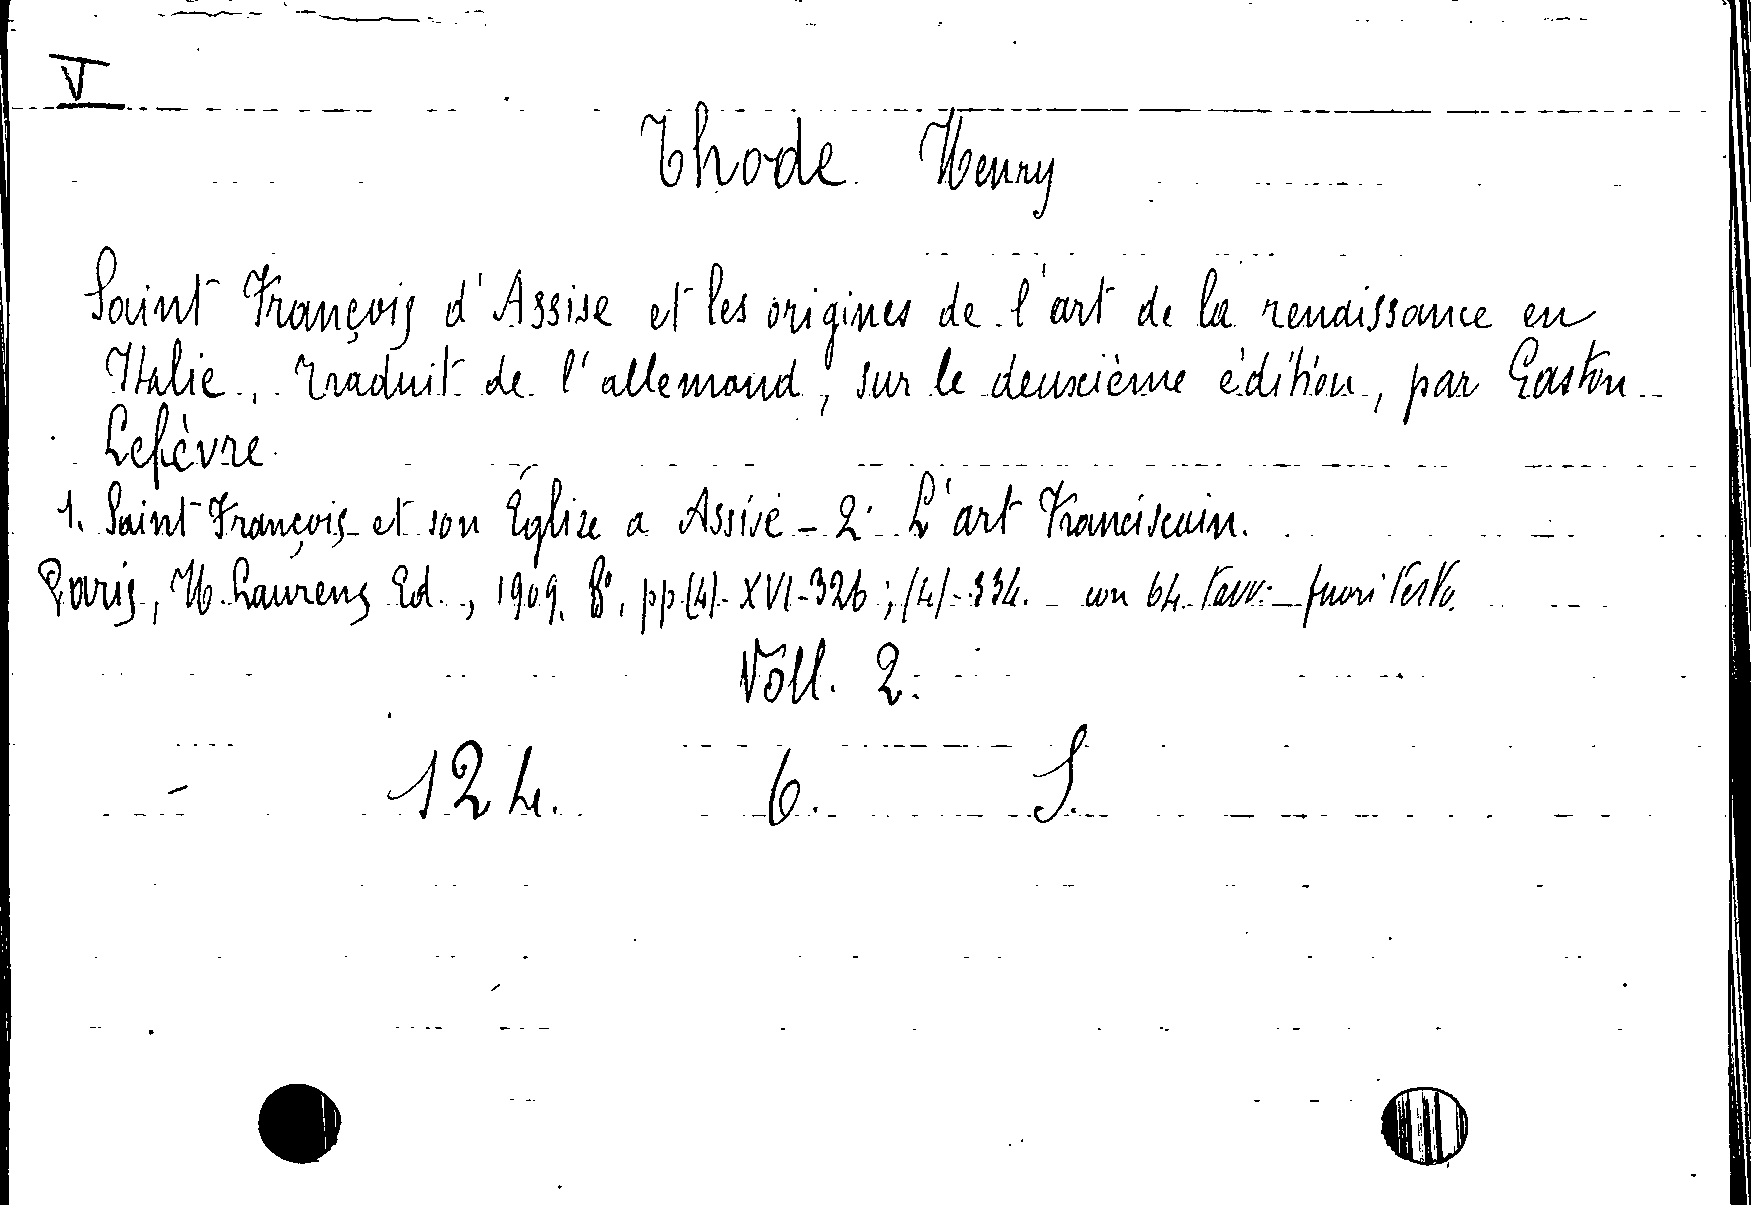 V
Thode Henry
Saint François d'Assise et les origines de l'art de la renaissance en
Italie, traduit de l'allemand, sur le deuxième édition, par Gaston
Lefèvre
1. Saint François et son Église a Assise - 2. L'art Franciscain.
Paris, H. Laurens Ed., 1909. 8°. pp. (4)-XVI-326; (4)-334. con 64 tavv. fuori testo.
Voll. 2.
124. 6. S.